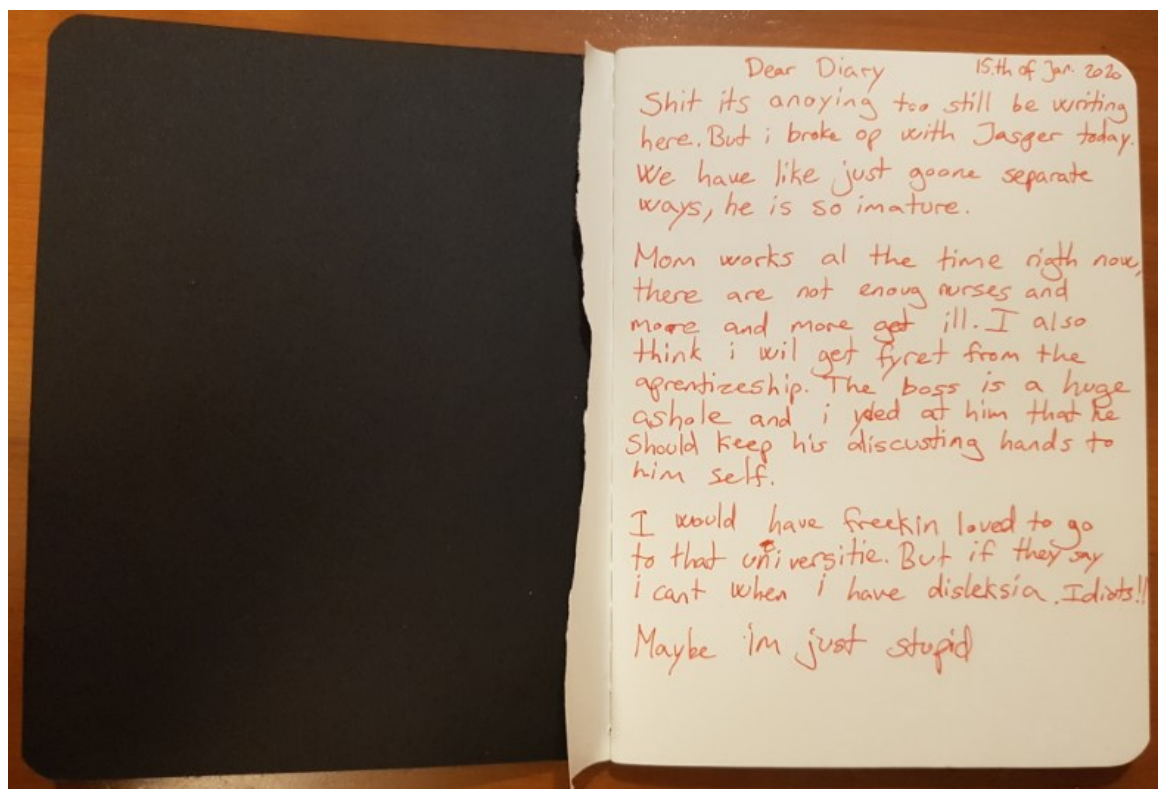 Dear Diary
15.th of Jan. 2020
Shit its anoying too still be writing
here. But i broke op with Jasger today.
We have like just goone separate
ways, he is so imature.
Mom works al the time rigth now,
there are not enoug nurses and
more and more get ill. I also
think i wil get fyret from the
aprentizeship. The boss is a huge
ashole and i at him that he
Should keep his discusting hands to
him self.
I would have freekin loved to go
to that universitie. But if they say
i cant when i have disleksia. Idiots!!
Maybe im just stupid